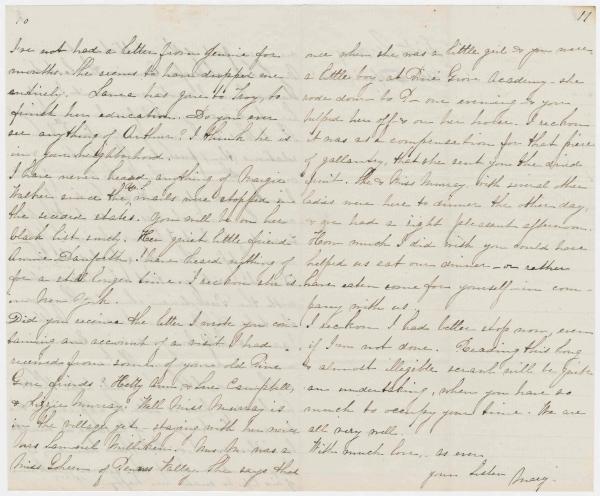 10
I've not had a letter from Jennie for
months. She seems to have dropped me
entirely. Laura has gone to Troy, to
finish her education. Do you ever
see anything of Arthur? I think he is
in your neighborhood.
I have never heard anything of Maggie
Walker since the U.S. mails were stopped in
the seceded states. You will be on her
black list surely. Her quiet little friend
Annie Danforth, I have heard nothing of
for a still longer time. I reckon she is
in New York.
Did you receive the letter I wrote you con-
taining an account of a visit I had
received from some of your old Pine
Grove friends? Hetty Ann & Sue Campbell,
& Lizzie Murray. Well Miss Murray is
in the village yet - staying with her niece
Mrs Samuel Milliken. Mrs M. was a
Miss Green of Penns Valley. She says that
11
once when she was a little girl & you were
a little boy, at Pine Grove Academy - she
rode down to P- one evening & you
helped her off & on her horse. I reckon
it was as a compensation for that piece
of gallantry, that she sent you the dried
fruit. She & Miss Murray with several other
ladies were here to dinner the other day,
& we had a right pleasant afternoon.
How much I did wish you could have
helped us eat our dinner - or rather
have eaten some for yourself in com-
pany with us.
I reckon I had better stop now, even
if I am not done. Reading this long
& almost illegible scrawl will be quite
an undertaking, when you have so
much to occupy your time. We are
all very well.
With much love, as ever
your Sister Mary.